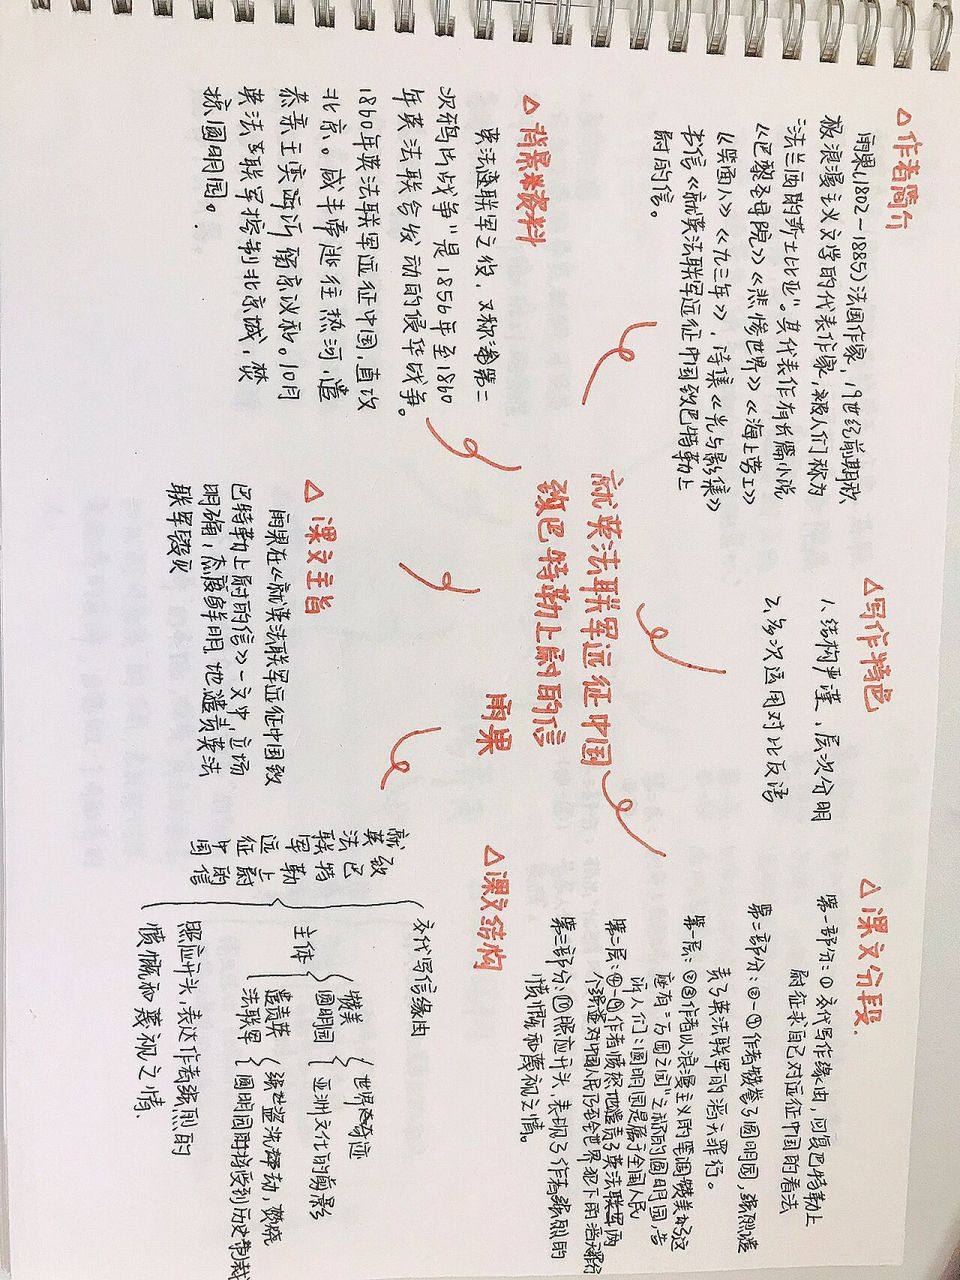 就英法联军远征中国
致巴特勒上尉的信
雨果
△作者简介
雨果(1802~1885)法国作家,19世纪前期积
极浪漫主义文学的代表作家,被人们称为
“法兰西的莎士比亚”。其代表作有长篇小说
《巴黎圣母院》《悲惨世界》《海上劳工》
《笑面人》《九三年》,诗集《光与影集》
书信《就英法联军远征中国致巴特勒上
尉的信。
△背景资料
英法联军之役,又称“第二
次鸦片战争”是1856年至1860
年英法联合发动的侵华战争。
1860年英法联军远征中国,直攻
北京。咸丰帝逃往热河,遣
恭亲王奕䜣留京议和。10月
英法联军控制北京城,焚
掠圆明园。
△写作特色
1、结构严谨,层次分明
2、多次运用对比反语
△课文主旨
雨果在《就英法联军远征中国致
巴特勒上尉的信》一文中,立场
明确,态度鲜明地谴责英法
联军毁灭
△课文分段.
第一部分:①交代写作缘由,回复巴特勒上
尉征求自己对远征中国的看法
第二部分:②-⑨作者赞誉了圆明园,强烈谴
责了英法联军的滔天罪行。
第一层:②③作者以浪漫主义的笔调赞美了这
座有“万园之园”之称的圆明园,告
诉人们:圆明园是属于全国人民
第二层:④-⑨作者愤怒地谴责了英法联军两
个强盗对中国人民乃至全世界犯下的滔天罪行
第三部分:⑩照应开头,表现了作者强烈的
愤慨和蔑视之情。
△课文结构
就英法联军远征中国
致巴特勒上尉的信
交代写信缘由
主体
赞美
圆明园
世界奇迹
亚洲文化的剪影
谴责英
法联军
强盗洗劫,焚烧
圆明园时将受到历史制裁
照应开头,表达作者强烈的
愤慨和蔑视之情.